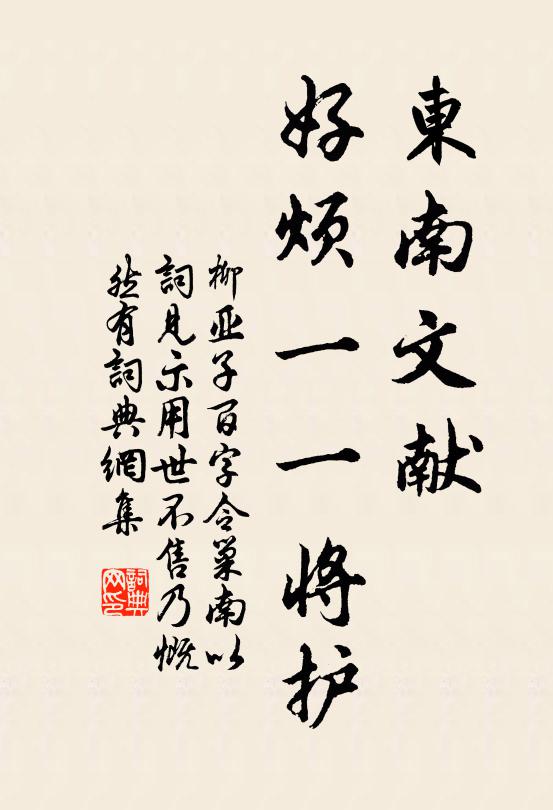 東南文献
好烦一一将护
柳亚子百字令巢南以
詞見示用世不售乃慨
然有詞典網集
詞典
网印